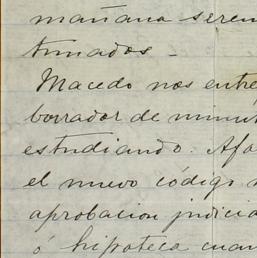 mañana seren
timados -
Macedo nos entre
borrador de minu
estudiando. Afo
el nuevo código
aprobacion judicia
ó hipoteca cuan